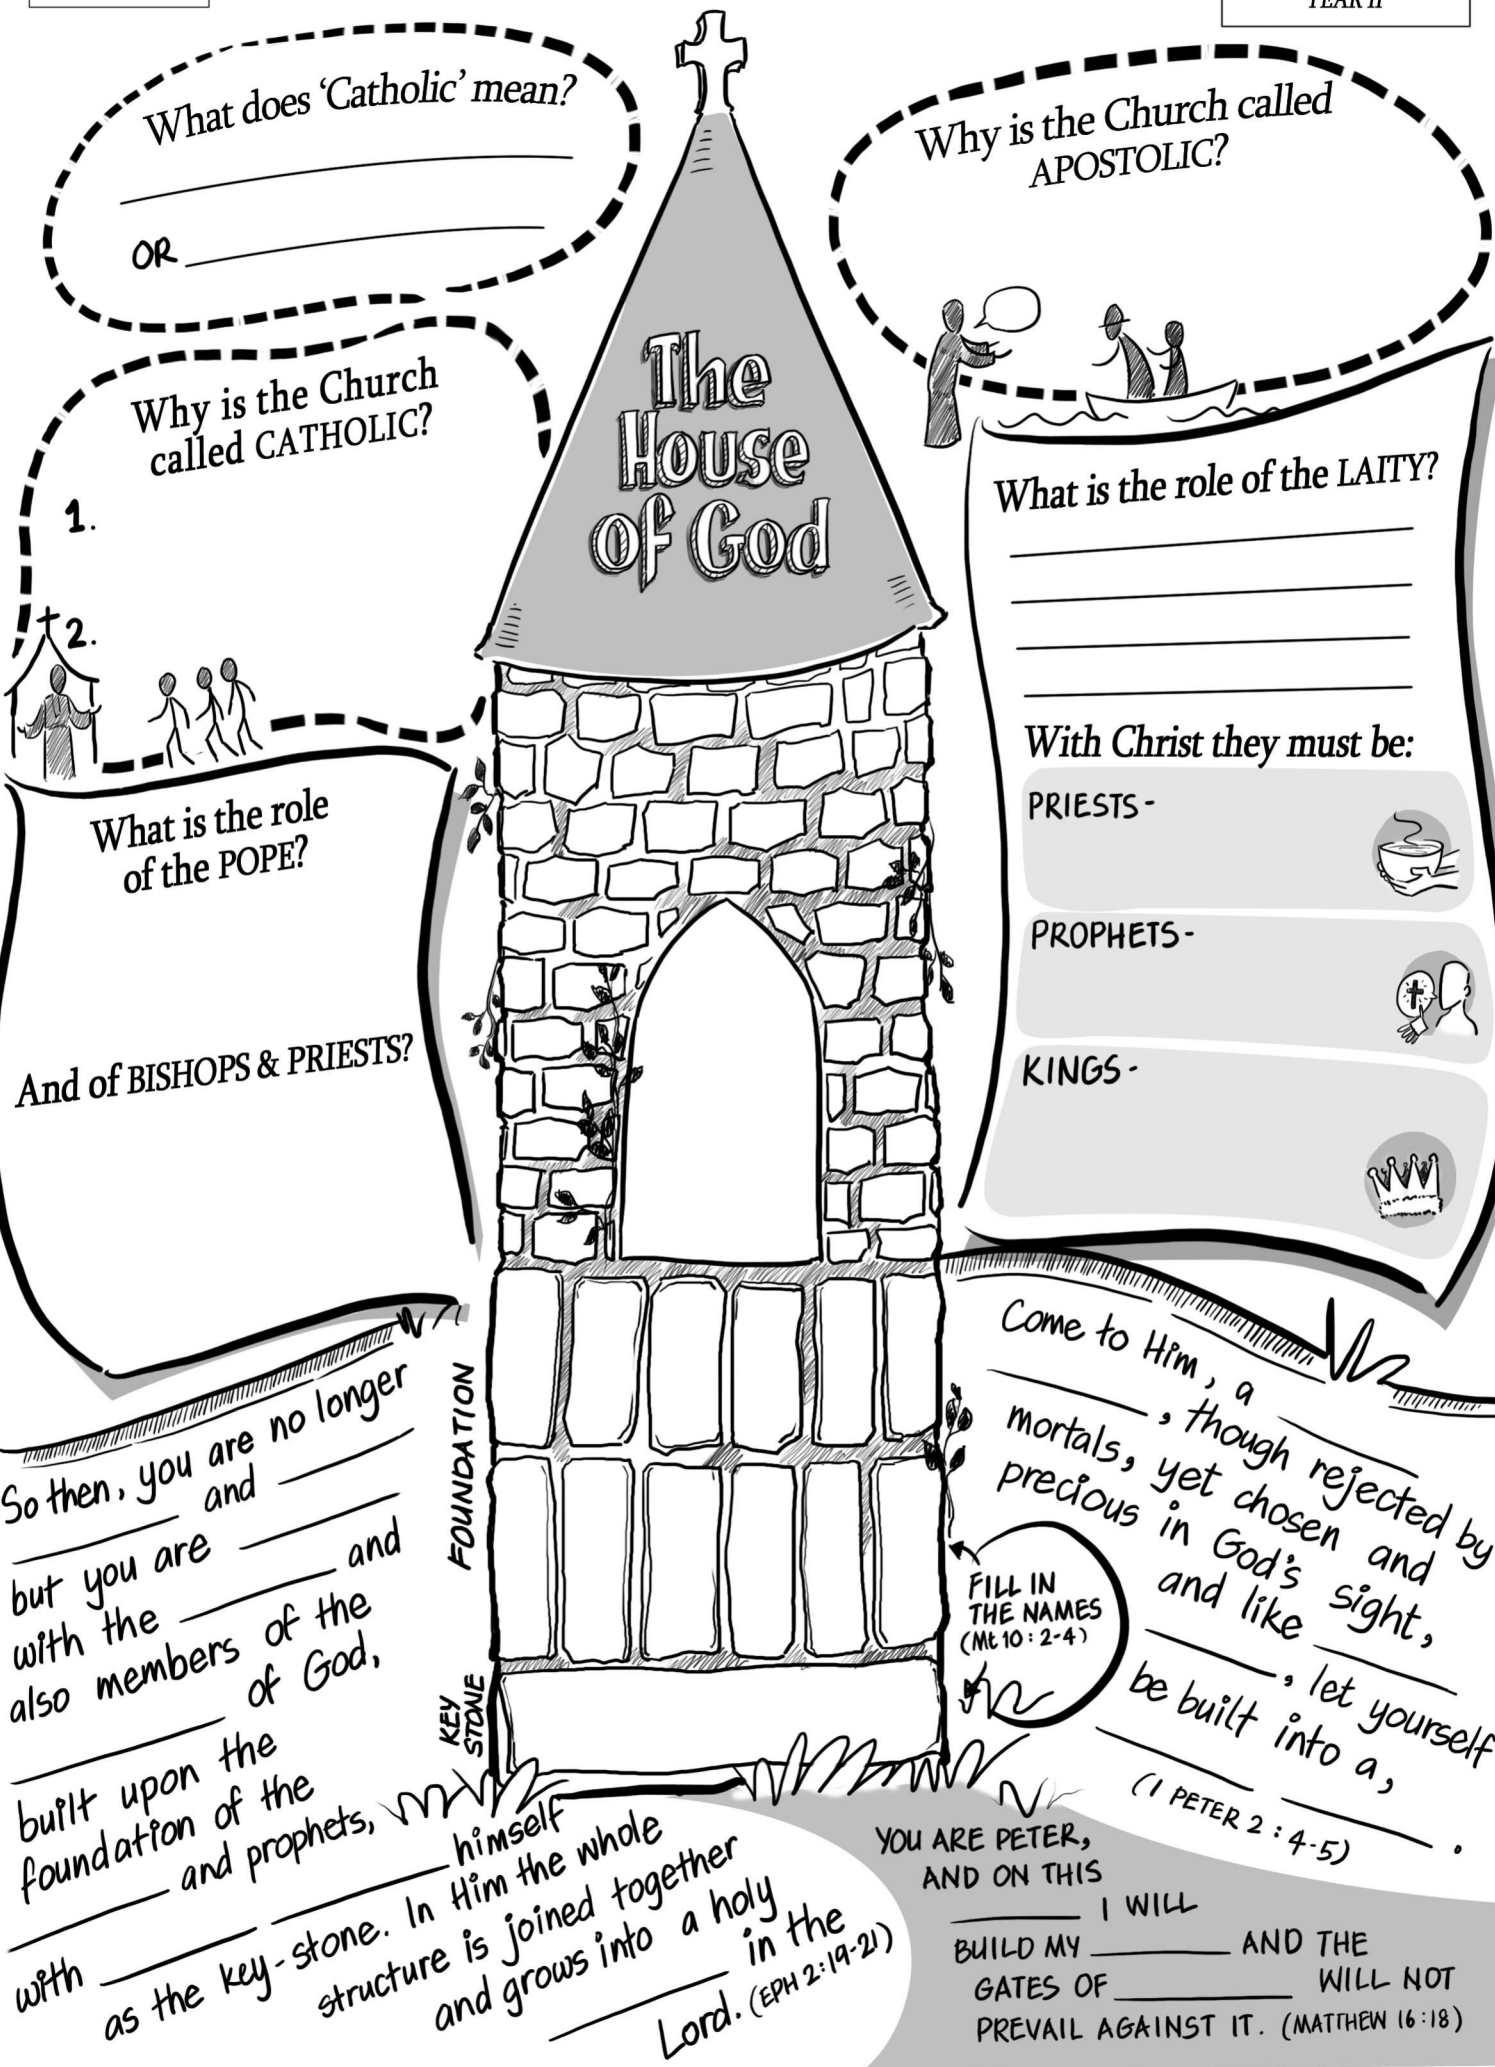 YEAR II
What does ‘Catholic’ mean?
OR
Why is the Church called
APOSTOLIC?
Why is the Church
called CATHOLIC?
1.
2.
The
House
of God
What is the role of the LAITY?
With Christ they must be:
PRIESTS -
PROPHETS -
KINGS -
What is the role
of the POPE?
And of BISHOPS & PRIESTS?
FOUNDATION
KEY
STONE
FILL IN
THE NAMES
(Mt 10 : 2-4)
So then, you are no longer
_____ and _____
but you are _____
with the _____ and
also members of the
_____ of God,
built upon the
foundation of the
_____ and prophets,
with _____ _____ himself
as the key-stone. In Him the whole
structure is joined together
and grows into a holy
_____ in the
Lord. (EPH 2:19-21)
Come to Him, a _____
_____, though rejected by
mortals, yet chosen and
precious in God's sight,
and like _____
_____, let yourself
be built into a,
_____ _____.
(1 PETER 2 : 4-5)
YOU ARE PETER,
AND ON THIS
_____ I WILL
BUILD MY _____ AND THE
GATES OF _____ WILL NOT
PREVAIL AGAINST IT. (MATTHEW 16:18)